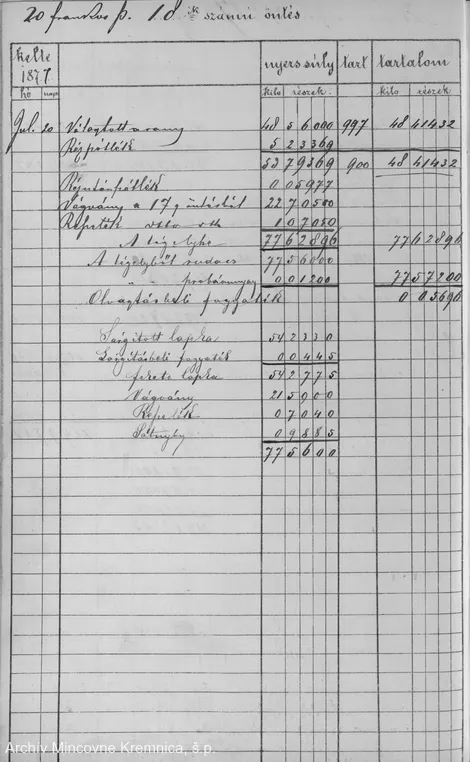 20 frankos p. 18 ik számú öntés
kelte 1877 nyers súly tart tartalom
hó nap kiló részek. kiló részek
Jul. 20 Válogtott arany 48 56000 997 48 41432
Rézpótlék 5 23369
53 79369 900 48 41432
0 05977
Vágvány a 17 öntésből 22 70500
Repeték 1 07050
A tégelybe 77 62896 77 62896
A tégelyből rudacs 77 56000
" " próbaanyag 0 01200 77 57200
Olvasztásbeli fogyaték 0 05696
Sárgitott lapka 54 2330
Sárgitásbeli fogyaték 0 0445
fekete lapka 54 2775
Vágvány 21 5900
Repeték 0 7040
0 9885
77 5600
Archív Mincovne Kremnica, š.p.